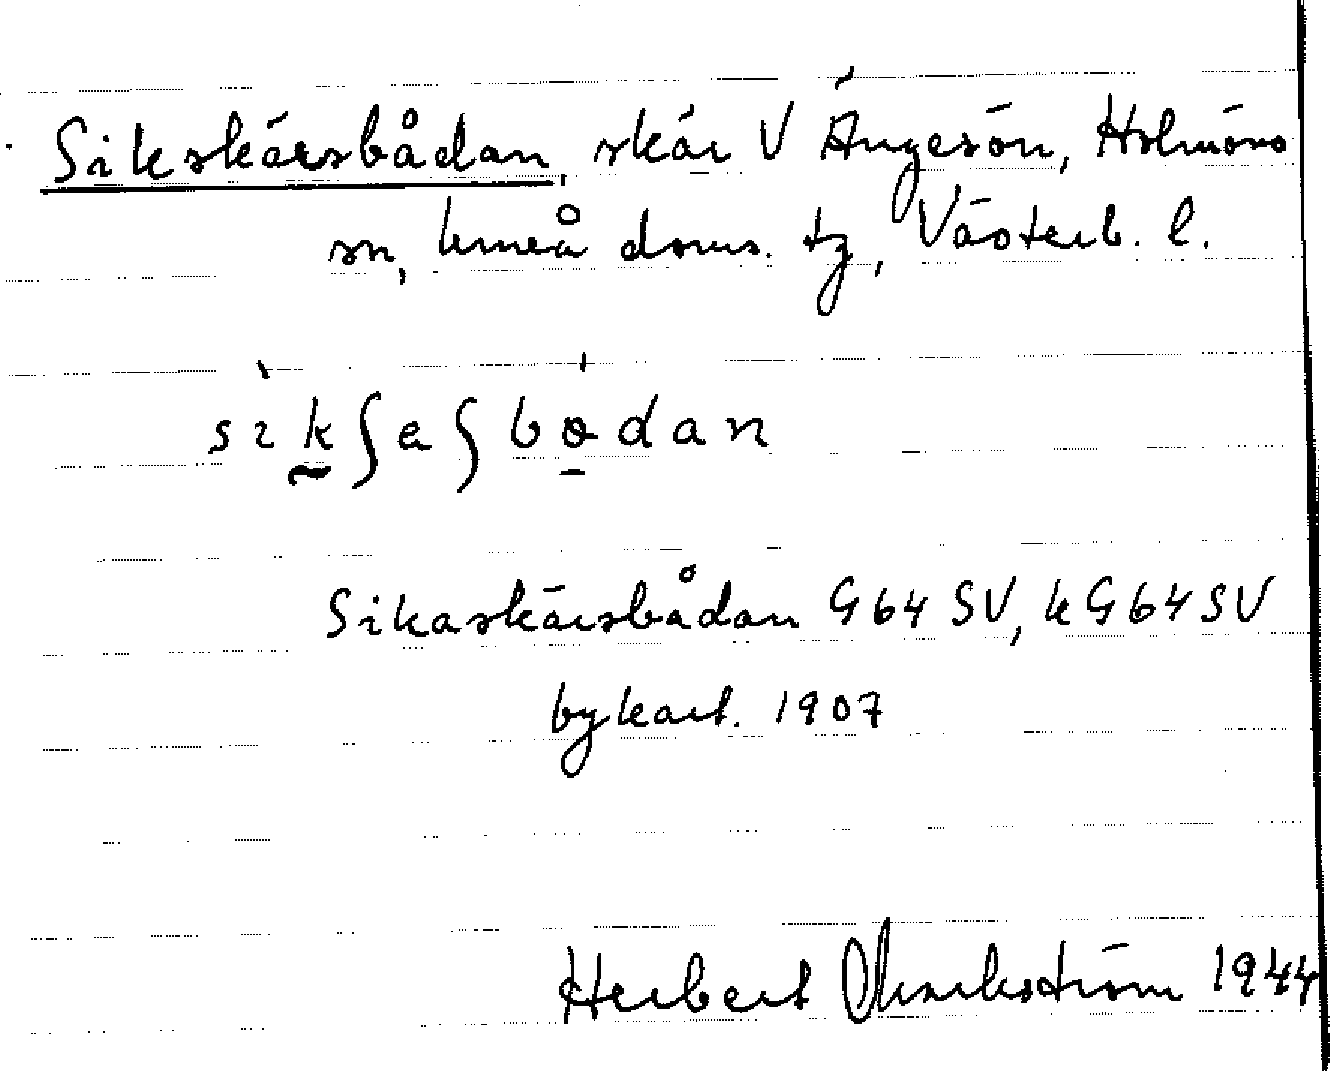 Sikskärsbådan, skär V Ängesön, Holmöns
sn, Umeå doms. tg, Västerb. l.
sɩkʃaʃbodan
Sikaskärsbådan G64 SV, kG64SV
bykart. 1907
Herbert 1944